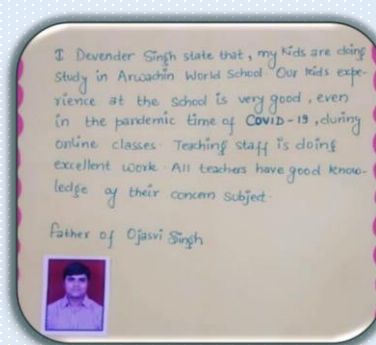 I Devender Singh state that, my kids are doing
study in Arwachin World School Our kids expe-
rience at the school is very good, even
in the pandemic time of COVID-19, during
online classes. Teaching staff is doing
excellent work. All teachers have good know-
ledge of their concern subject.
Father of Ojasvi Singh